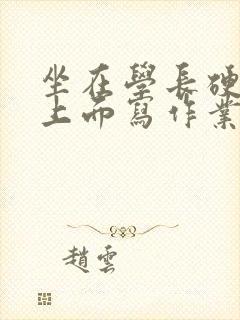 坐在學長硬
上而寫作業
趙雲